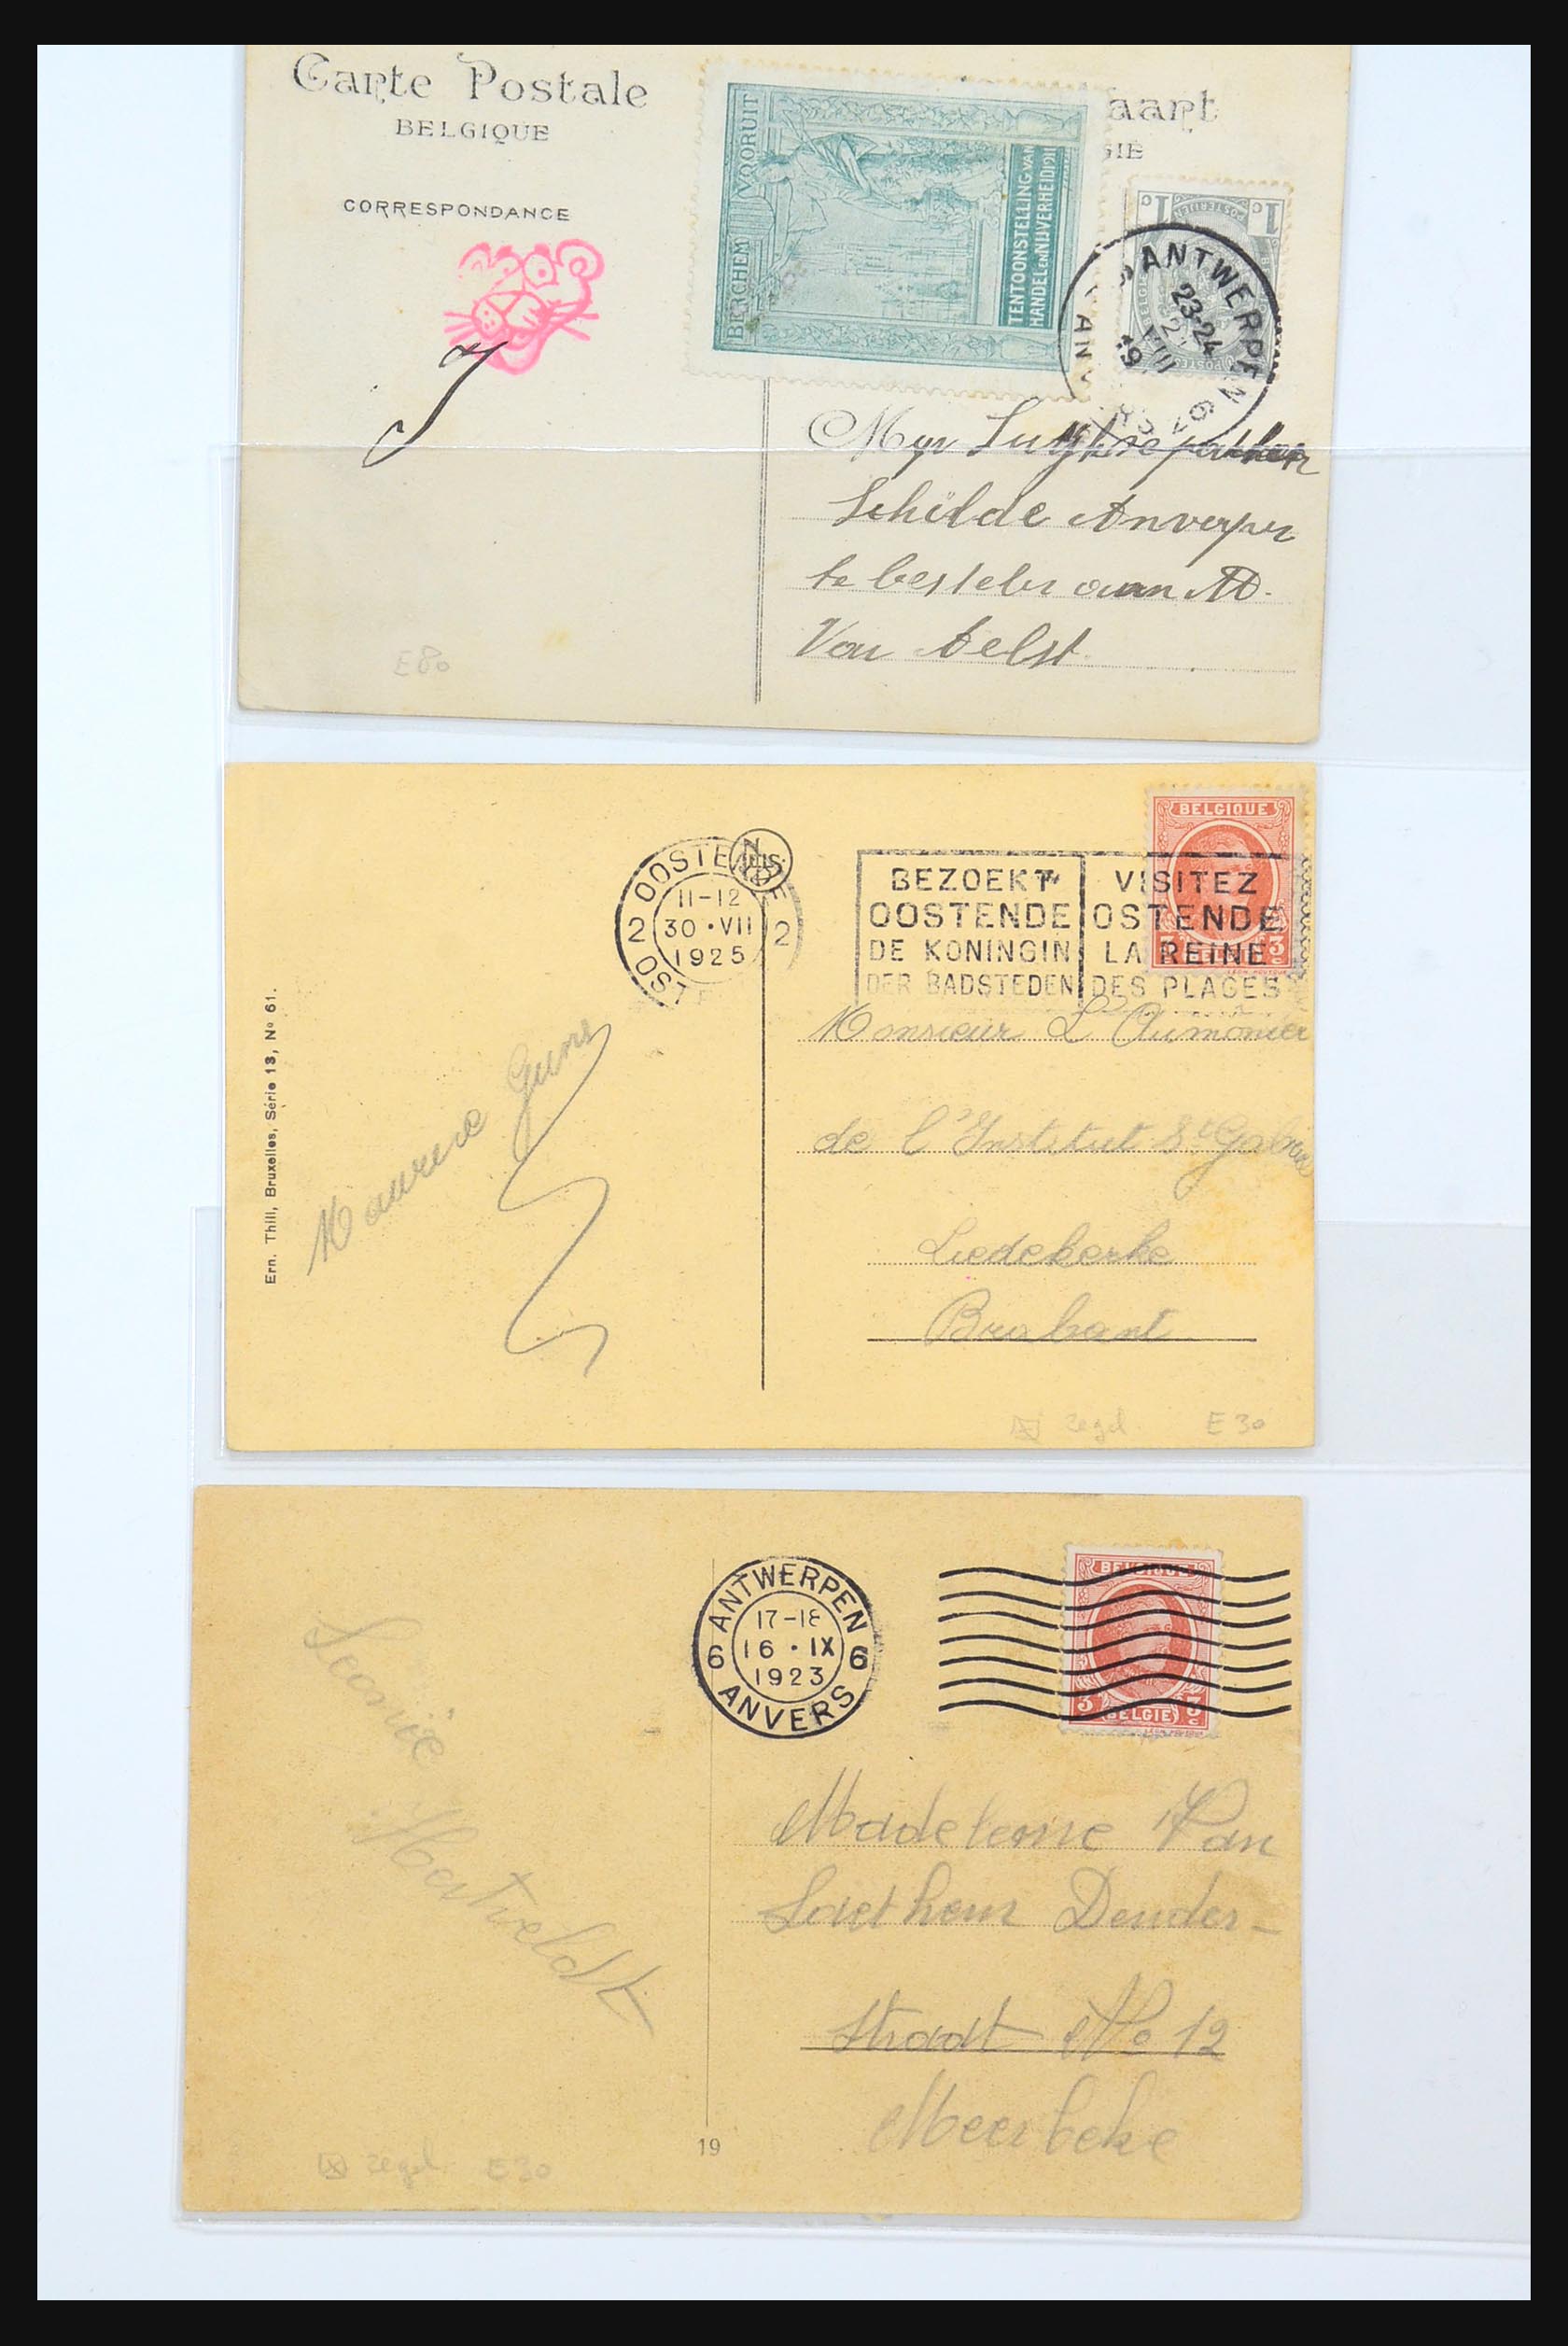 Carte Postale
BELGIQUE
CORRESPONDANCE
aart
GIË
BERCHEM VOORUIT
TENTOONSTELLING VAN
HANDEL EN NIJVERHEID 1911
1c 1c
ANTWERPEN
23-24
VIII
6
Mgr
Schilde Anverpen
te bestelen aan
Van Aelst
E80
OOSTENDE
11-12
30 · VII
1925
2 2
OSTE
BEZOEKT
OOSTENDE
DE KONINGIN
DER BADSTEDEN
VISITEZ
OSTENDE
LA REINE
DES PLAGES
BELGIQUE
3
Ern. Thill, Bruxelles, Série 13, Nº 61.
Monsieur L'Aumonier
de l'Institut St Gabriel
Liedekerke
Brabant
zegel E30
ANTWERPEN
17-18
6 16 · IX 6
1923
ANVERS
BELGIQUE
3 (BELGIE) 3
c
Leonie
Madeleine Van
Laethem Dender-
Straat No 12
Meerbeke
19
zegel E30